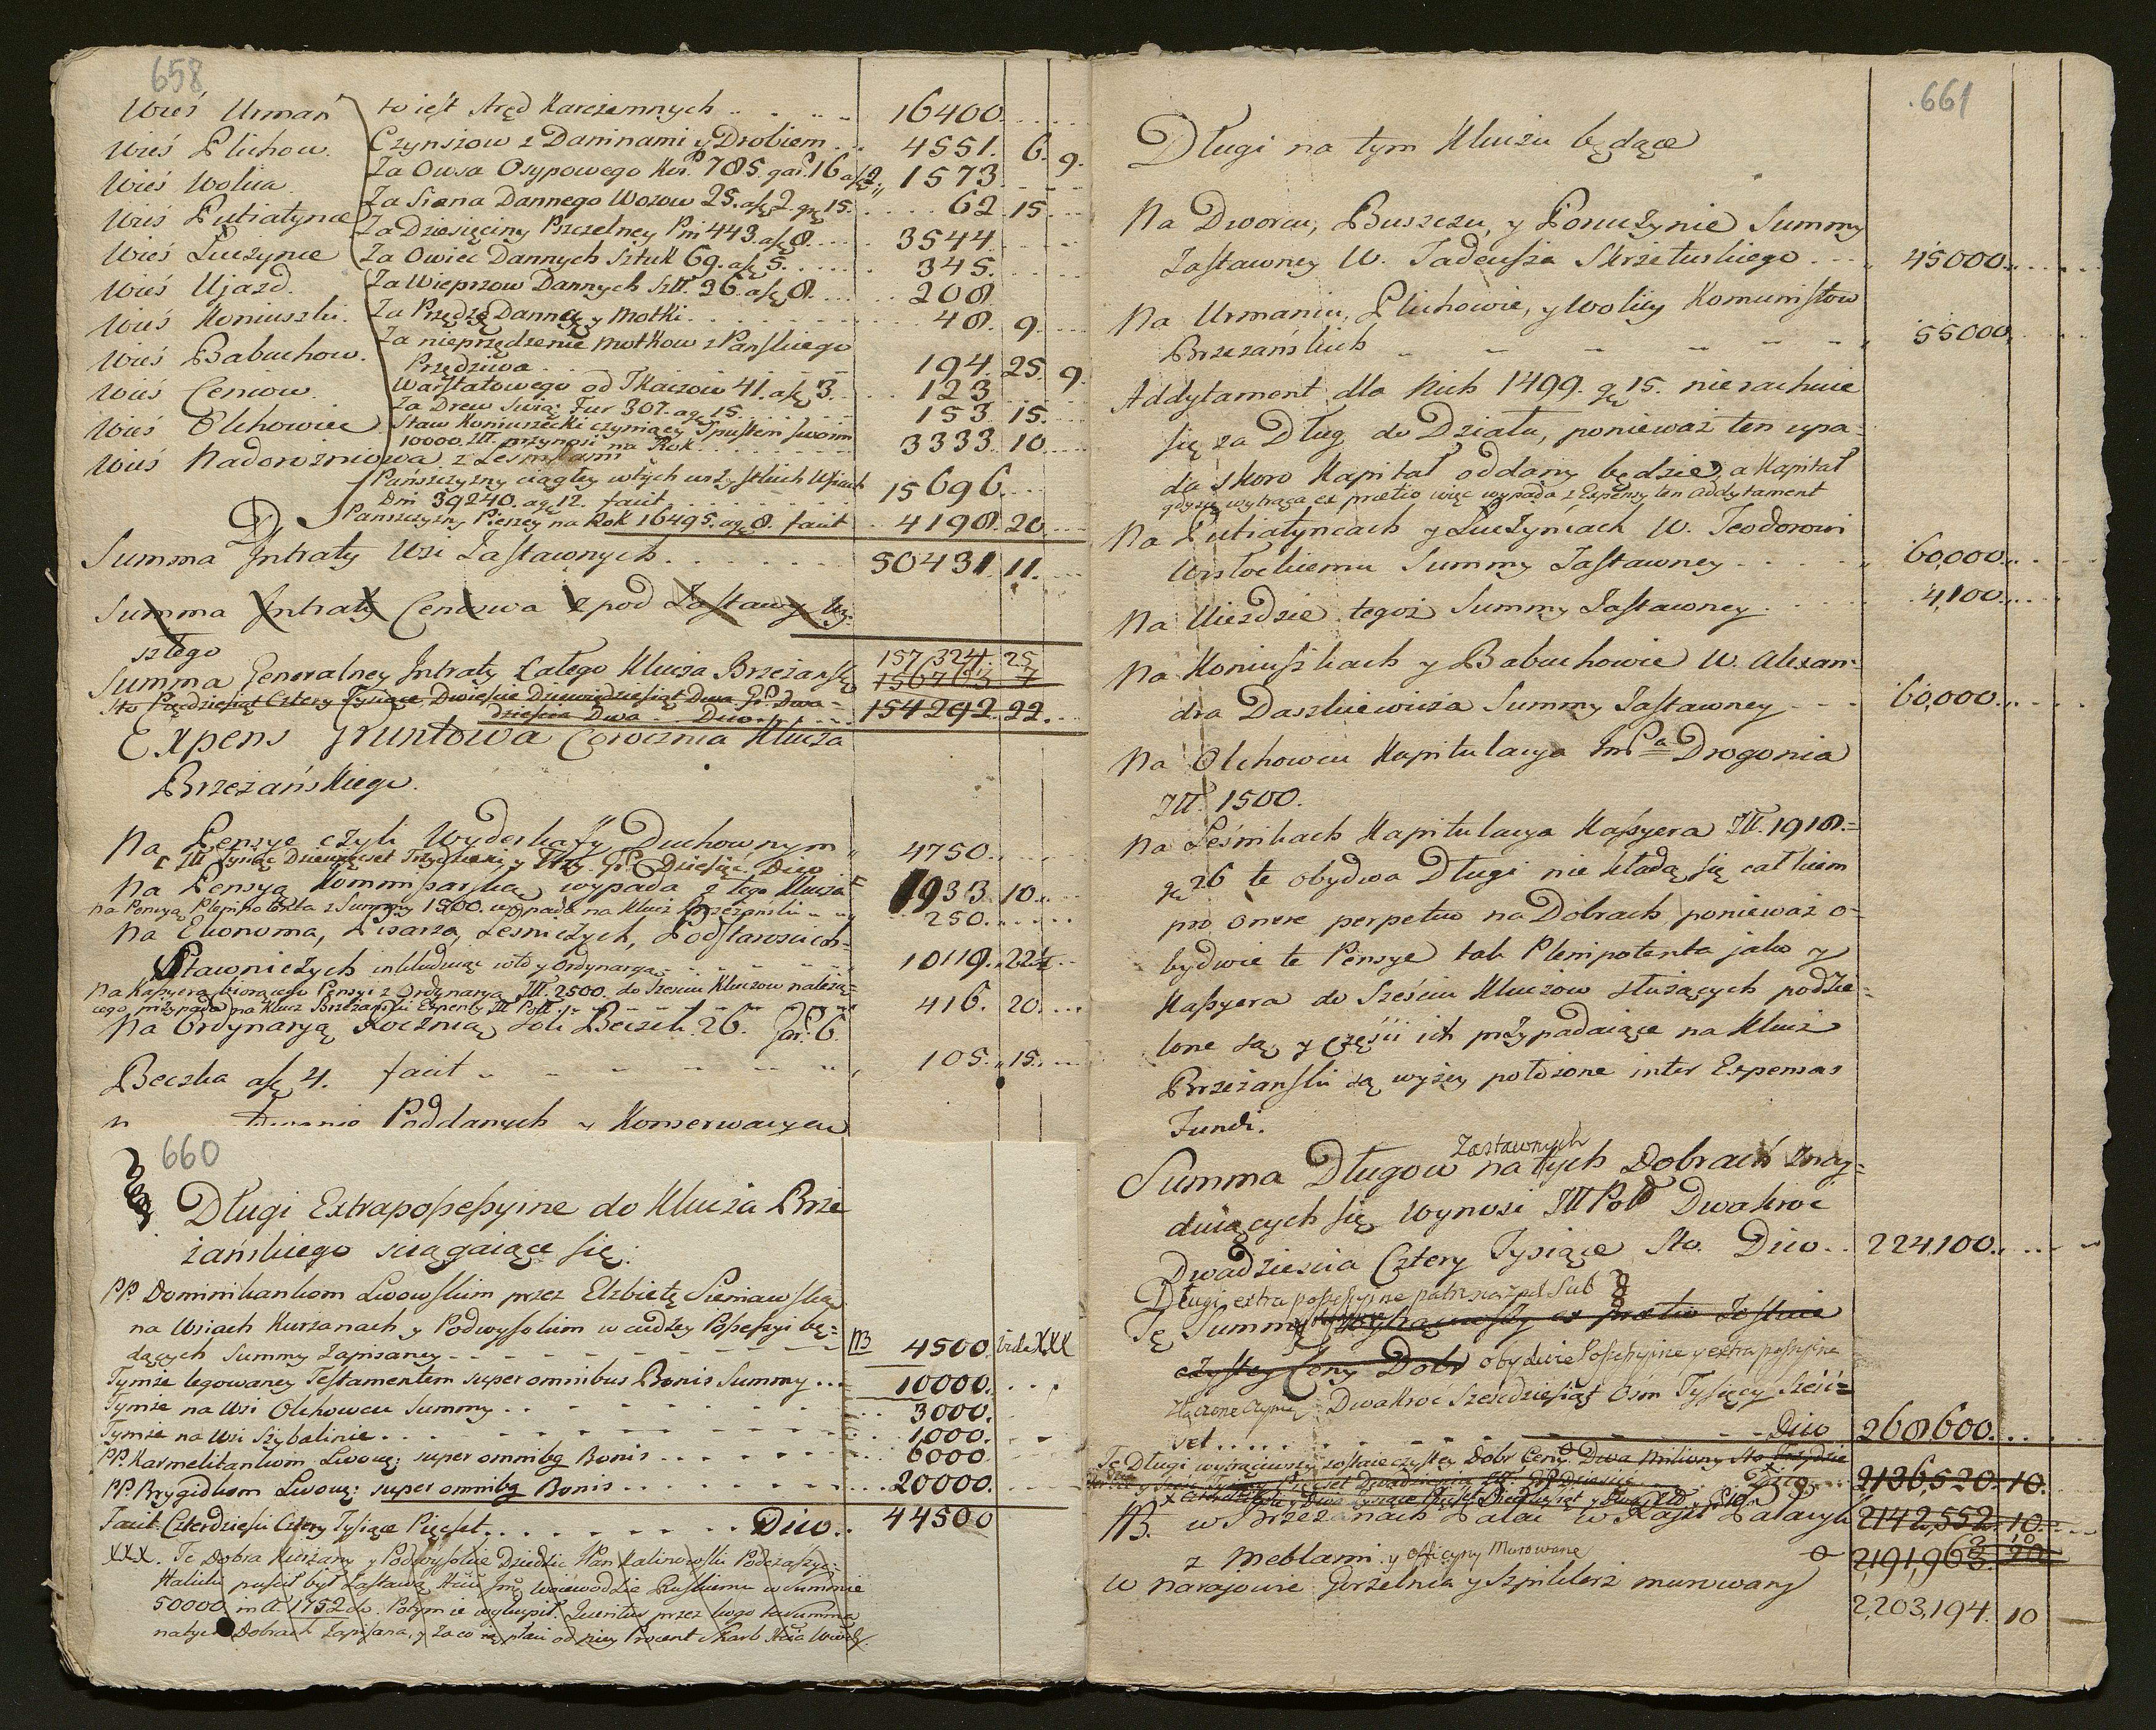 658
Wieś Urmań to iest Aręd Karczemnych 16400
Wieś Plichow. Czynszow z Daninami y Drobiem 4551. 6. 9.
Wieś Wolica. Za Owsa Osypowego Kor. 785. gar. 16 a 1573
Wieś Putiatynce Za Siana Dannego Wozow 25. a 2 gr 15. 62 15
Za Dziesięciny Pszczelney Pni 443. a 8. 3544
Wieś Łuczynce Za Owiec Dannych Sztuk 69. a 5. 345.
Wieś Ujazd. Za Wieprzow Dannych Szt. 26. a 8. 208
Wieś Koniuszki. Za Przędzę Danną y Motki. 48. 9.
Wieś Babuchow. Za nieprzędzenie Motkow z Pańskiego
Przędziwa 194. 25. 9.
Wieś Ceniow. Warstatowego od Tkaczow 41. a 3. 123
Za Drew Fur 307. a g. 15. 153 15.
Wieś Olchowiec Staw Koniuszecki czyniący Spustem swoim
10000. Zł. przynosi na Rok 3333 10
Wieś Nadorożniowa z Leśnikami
Pańszczyzny ciągłey w tych wszystkich Wsiach
Dni 39240. a g. 12. facit 15696
Pańszczyzny Pieszey na Rok 16495. a g. 8. facit 4198. 20
Summa Jntraty Wsi Zastawnych 50431 11.
Summa Jntraty Ceniowa z pod Zastawy wy-
szłego
157,324. 25
Summa Generalney Jntraty Całego Klucza Brzeżańsk. 156763 7
Sto Pięćdziesiąt Cztery Tysiące Dwieście Dziewięćdziesiąt Dwa Gr. Dwa-
dzieścia Dwa Dico 154292 22.
Expens Gruntowa Coroczna Klucza
Brzeżańskiego.
Na Pensye czyli Wyderkaffy Duchownym 4750.
Zł Tysiąc Dziewięćset Trzydzieści y Trzy. Gr. Dziesięć Dico
Na Pensyą Kommissarską wypada z tego Klucza 1933 10.
Na Pensyą Plenipotenta z Summy 1500. wypada na Klucz Brzeżański 250.
Na Ekonoma, Pisarza, Leśniczych, Podstarościch
Stawniczych inkluduiąc w to y Ordynaryą 10119. 22½
Na Kassyera biorącego Pensyi z Ordynaryą Zł. 2500. do Sześciu Kluczow należą-
cego, przypada na Klucz Brzeżański Expensy Zł Pol. 416. 20.
Na Ordynaryą Roczną Soli Beczek. 26. Gar. 6.
Beczka a 4. facit 105. 15.
Poddanych y Konserwacyą
660
Długi Extrapossessyine do Klucza Brze
żańskiego sciągaiące się:
PP. Dominikankom Lwowskim przez Elżbietę Sieniawską
na Wsiach Kurzanach y Podwysokim w cudzey Possessyi bę-
dących Summy Zapisaney NB 4500. Vide XXX
Tymże legowaney Testamentem super omnibus Bonis Summy 10000.
Tymże na Wsi Olchowcu Summy 3000.
Tymże na Wsi Szybalinie 1,000.
PP. Karmelitankom Lwow: super omnibq Bonis 6000
PP. Brygidkom Lwow: super omnibq Bonis 20000.
Facit Czterdzieści Cztery Tysiące Pięćset Dico. 44500
XXX. Te Dobra Kurzany y Podwysokie Dziedzic Pan Kalinowski Podczaszyc
Halicki puścił był Zastawą Woiewodzie Ruskiemu w Summie
50000. in A. 1752do. Potym ie wykupił. Queritur przez kogo ta Summa
na tych Dobrach Zapisana, y za co się płaci od niey Procent z Skarb
661
Długi na tym Kluczu będące
Na Dworcu, Buszczu, y Poruczynie Summy
Zastawney W. Tadeusza Skrzetuskiego 45000.
Na Urmaniu, Plichowie, y Wolicy Komunistow
Brzeżańskich 55000.
Addytament dla nich 1499. gr 15. nierachuie
się za Dług do Działu, ponieważ ten upa-
da skoro Kapitał oddany będzie, a Kapitał
gdy się wytrąca ex praetio więc wypada z Expensy ten addytament
Na Putiatyncach y Łuczyńcach W. Teodorowi
Wisłockiemu Summy Zastawney 60,000.
Na Uiezdzie tegoż Summy Zastawney 4,100.
Na Koniuszkach y Babuchowie W. Alexan-
dra Daszkiewicza Summy Zastawney 60,000.
Na Olchowcu Kapitulacya ImPa Drogonia
Zł. 1500.
Na Leśnikach Kapitulacya Kassyera Zł. 1918.
gr 26 te obydwa Długi nie kładą się całkiem
pro onere perpetuo na Dobrach, ponieważ o-
bydwie te Pensye tak Plenipotenta jako y
Kassyera do Sześciu Kluczow służących podzie-
lone są, y części ich przypadaiące na Klucz
Brzeżański są wyżey położone inter Expensas
Fundi.
Summa Długow Zastawnych na tych Dobrach znay-
duiących się wynosi Zł Pol Dwakroc
Dwadzieścia Cztery Tysiące Sto. Dico 224,100.
Długi extra possessyine patrz Sub
Tę Summę wytrąciwszy ex praetio zostaie
czystey Ceny Dobr obydwie Possessyine y extra possessyine
złączone czynią Dwakroć Sześćdziesiąt Ośm Tysięcy Sześć-
set Dico 268,600.
Te Długi wytrąciwszy zostaie czystey Dobr Ceny Dwa Miliony Sto Trzydzie
2136,520. 10.
NB. w Brzeżanach Pałac w Raju Pałacyk 2142,552. 10.
z Meblami. y Officyny Murowane 2,191,963. 20
w Narajowie Gorzelnia y Szpiklerz murowany
2,203,194. 10